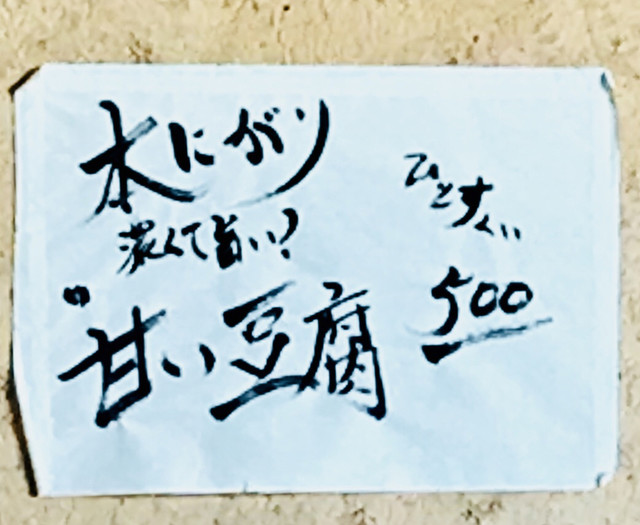 本にがり
濃くて旨い?
"甘い豆腐
ひとすくい
500